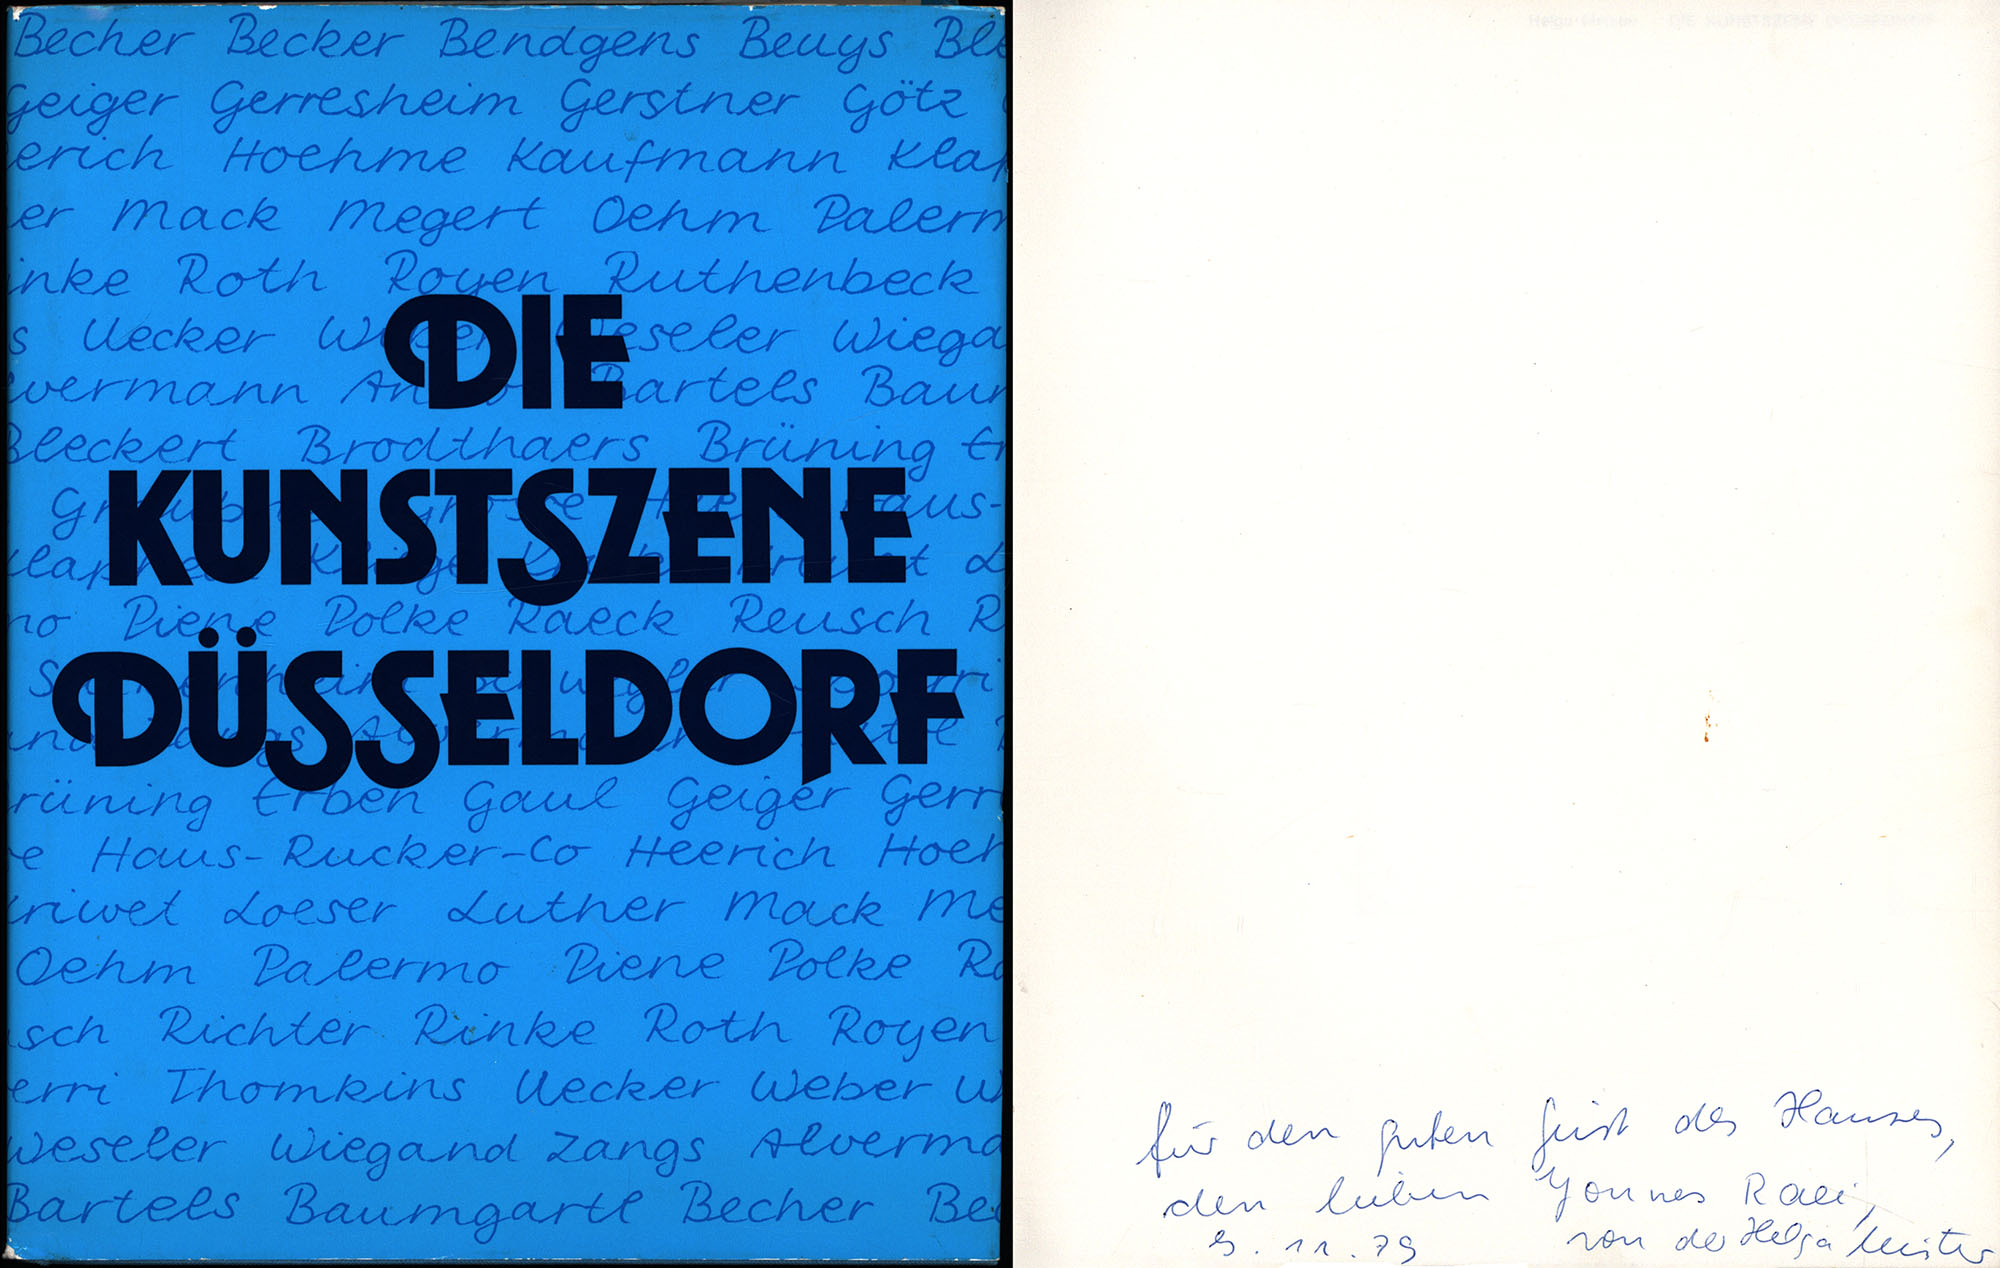 Becher Becker Bendgens Beuys Ble
Geiger Gerresheim Gerstner Götz
erich Hoehme Kaufmann Klap
er Mack Megert Oehm Palerm
inke Roth Royen Ruthenbeck
s Uecker Weber Weseler Wiega
lvermann Bartels Baum
Bleckert Brodthaers Brüning Er
DIE
KUNSTSZENE
DÜSSELDORF
no Piene Polke Raeck Reusch R
rüning Erben Gaul Geiger Gerr
e Haus-Rucker-Co Heerich Hoeh
riwet Loeser Luther Mack Me
Oehm Palermo Piene Polke Ra
usch Richter Rinke Roth Royen
erri Thomkins Uecker Weber W
Weseler Wiegand Zangs Alverma
Bartels Baumgartl Becher Bec
Helga Meister DIE KUNSTSZENE DÜSSELDORF
für den guten Geist des Hauses,
den lieben Younes
9.11.79 von der Helga Meister